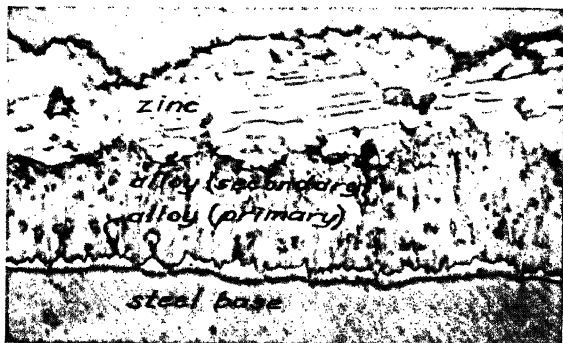 zinc
alloy (secondary)
alloy (primary)
steel base